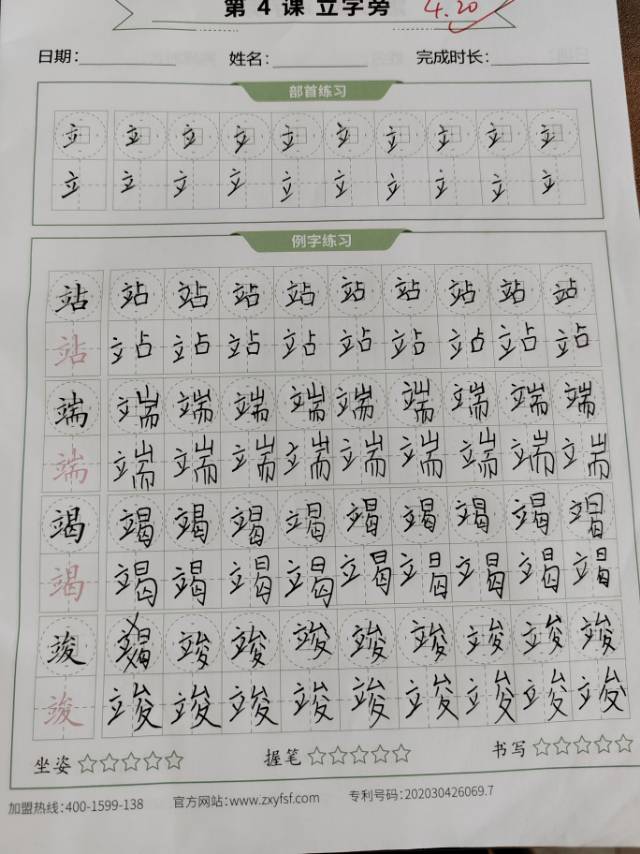 第 4 课 立字旁 4.20
日期: 姓名: 完成时长:
部首练习
立 立 立 立 立 立 立 立 立 立
立 立 立 立 立 立 立 立 立 立
例字练习
站 站 站 站 站 站 站 站 站 站
站 站 站 站 站 站 站 站 站 站
端 端 端 端 端 端 端 端 端 端
端 端 端 端 端 端 端 端 端 端
竭 竭 竭 竭 竭 竭 竭 竭 竭 竭
竭 竭 竭 竭 竭 竭 竭 竭 竭 竭
竣 竭 竣 竣 竣 竣 竣 竣 竣 竣
竣 竣 竣 竣 竣 竣 竣 竣 竣 竣
坐姿☆☆☆☆☆ 握笔☆☆☆☆☆ 书写☆☆☆☆☆
加盟热线:400-1599-138 官方网站:www.zxyfsf.com 专利号码:202030426069.7